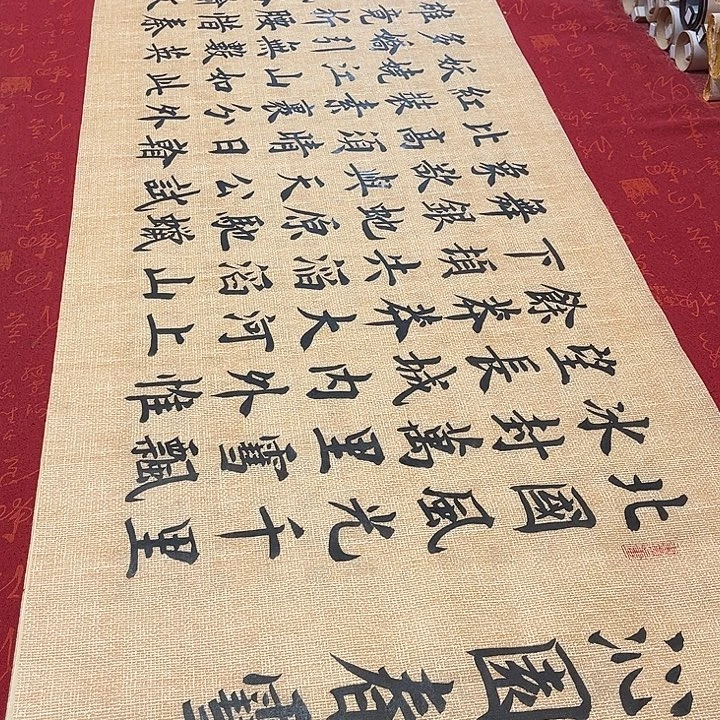 沁園春雪
北國風光千里
冰封萬里雪飄
望長城內外惟
餘莽莽大河上
下頓失滔滔山
舞銀蛇原馳蠟
象欲與天公試
比高須晴日看
紅裝素裹分外
妖嬈江山如此
多嬌引無數英
雄竞折腰惜秦